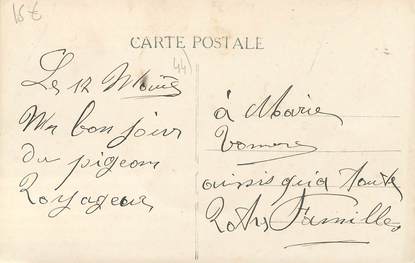 15€
CARTE POSTALE
44)
Le 12
Un bon jour
du pigeon
Voyageur
à Marie
ainsis qu'a toute
Votre Famille